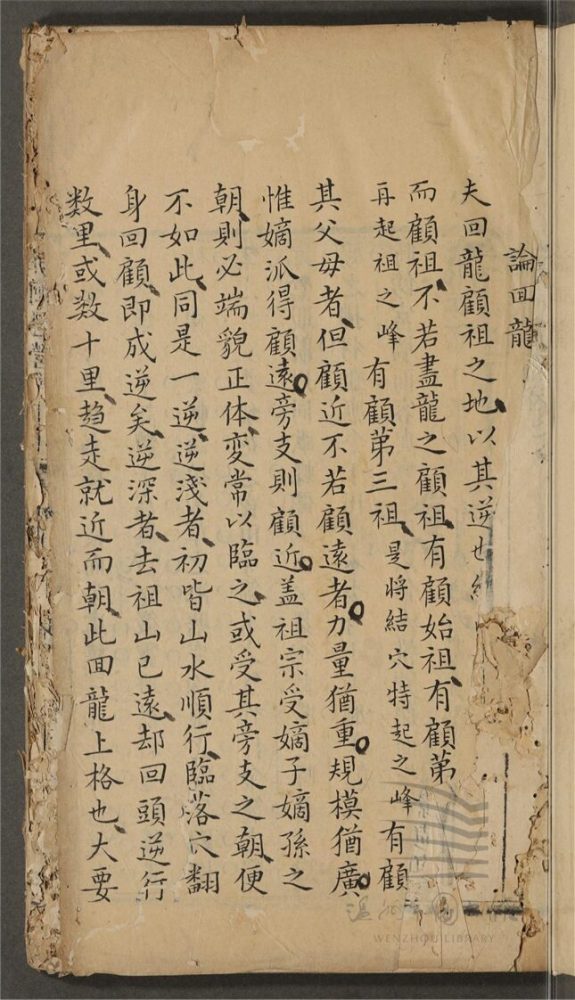 論回龍
夫回龍顧祖之地以其逆也
而顧祖不若盡龍之顧祖有顧始祖有顧第
再起祖之峰有顧第三祖是將結穴特起之峰有顧
其父母者但顧近不若顧遠者力量猶重規模猶廣
惟嫡派得顧遠旁支則顧近盖祖宗受嫡子嫡孫之
朝則必端貌正体变常以臨之或受其旁支之朝便
不如此同是一逆逆淺者初皆山水順行臨落穴翻
身回顧即成逆矣逆深者去祖山已遠却回頭逆行
数里或数十里趋走就近而朝此回龍上格也大要
WENZHOU LIBRARY